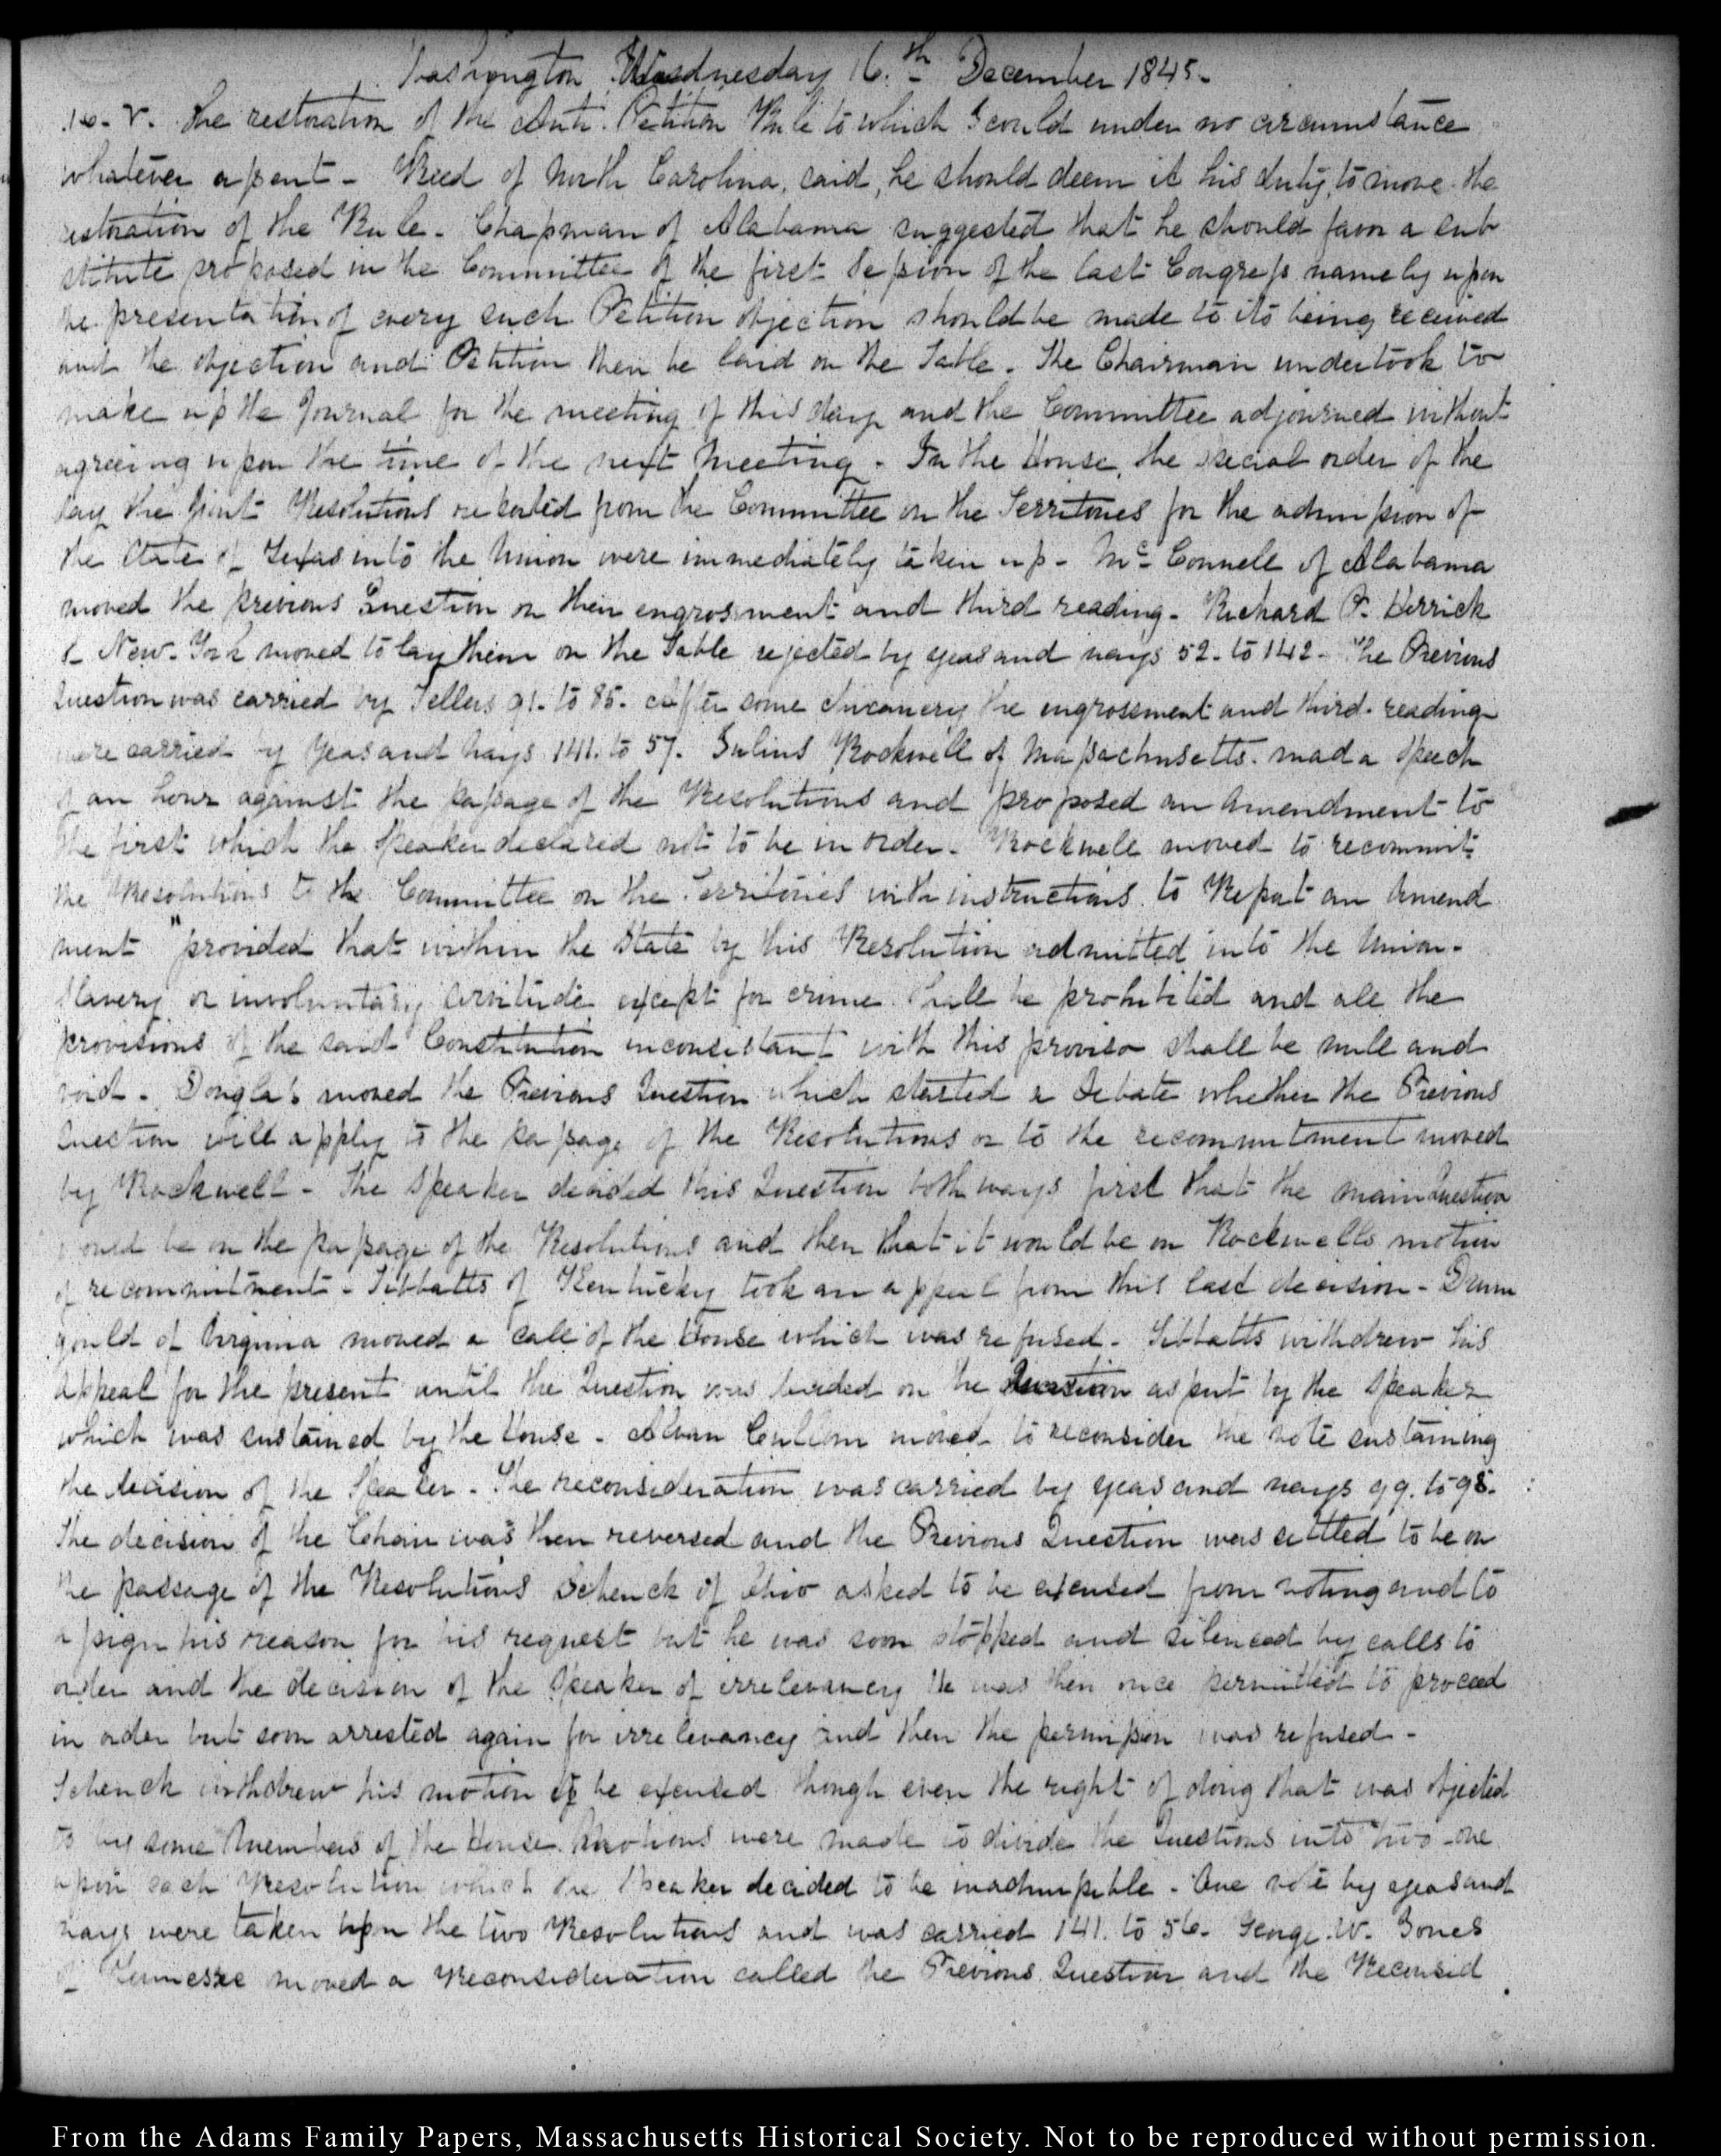 Washington Wednesday 16.th December 1845.
16. V. The restoration of the Anti. Petition Rule to which I could under no circumstance
whatever assent - Reed of North Carolina, said, he should deem it his duty, to move the
restoration of the Rule. Chapman of Alabama suggested that he should favor a sub
stitute proposed in the Committee of the first Session of the last Congress namely upon
the presentation of every such Petition objection should be made to its being received
and the objection and Petition then be laid on the Table. The Chairman undertook to
make up the Journal for the meeting of this day and the Committee adjourned without
agreeing upon the time of the next meeting. In the House, the special order of the
day the joint Resolutions reported from the Committee on the Territories for the admission of
the State of Texas into the Union were immediately taken up - Mc. Connell of Alabama
moved the previous Question on their engrossment and third reading. Richard P. Herrick
of New-York moved to lay them on the Table rejected by yeas and nays 52. to 142. The Previous
Question was carried by Tellers 91. to 85. After some chicanery the engrossment and third. reading
were carried by Yeas and Nays 141. to 57. Julius Rockwell of Massachusetts. made a Speech
of an hour against the passage of the Resolutions and proposed an Amendment to
the first which the Speaker declared not to be in order. Rockwell moved to recommit
the Resolutions to the Committee on the Territories with instructions to Report an Amend
ment "provided that within the State by this Resolution admitted into the Union.
slavery or involuntary servitude except for crime shall be prohibited and all the
provisions of the said Constitution inconsistant with this proviso shall be null and
void. Douglass moved the Previous Question which started a Debate whether the Previous
Question will apply to the passage of the Resolutions or to the recommitment moved
by Rockwell - The Speaker decided this Question both ways first that the main Question
would be on the passage of the Resolutions and then that it would be on Rockwells motion
of recommitment. Tibbatts of Kentucky took an appeal from this last decision - Drum
gould of Virginia moved a call of the House which was refused. Tibbatts withdrew his
appeal for the present until the Question was on the Question as put by the Speaker
which was sustained by the House. Alvan Cullom moved to reconsider the vote sustaining
the decision of the Speaker. The reconsideration was carried by yeas and nays 99. to 98.
The decision of the Chair was then reversed and the Previous Question was settled to be on
the passage of the Resolutions Schenck of Ohio asked to be excused from voting and to
assign his reason for his request but he was soon stopped and silenced by calls to
order and the decision of the Speaker of irrelevancy He was then once permitted to proceed
in order but soon arrested again for irrelevancy and then the permission was refused -
Schenck withdrew his motion to be excused though even the right of doing that was objected
to by some Members of the House. Motions were made to divide the Questions into two - one
upon each Resolution which the Speaker decided to be inadmissible. One vote by yeas and
nays were taken upon the two Resolutions and was carried 141. to 56. George. W. Jones
of Tennessee moved a Reconsideration called the Previous Question and the Reconsid
From the Adams Family Papers, Massachusetts Historical Society. Not to be reproduced without permission.